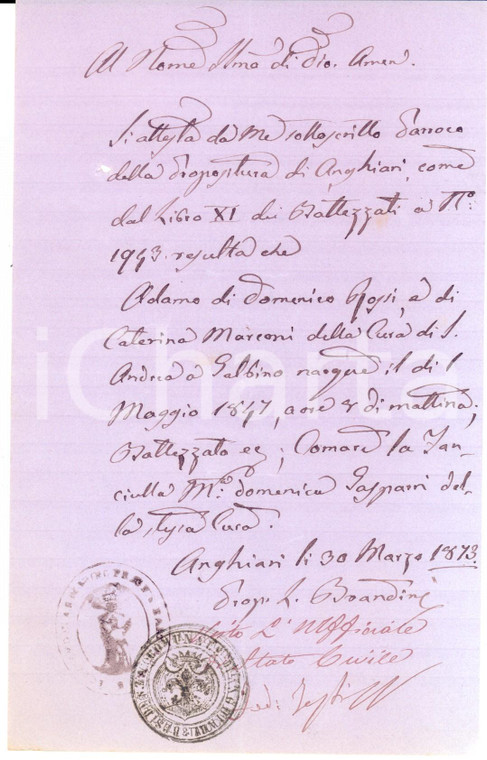 Al Nome SSmo di Dio. Amen.
Si attesta da Me sottoscritto Parroco
della Propositura di Anghiari, come
dal Libro XI dei Battezzati a N.º
1943. resulta che
Adamo di Domenico Rossi, e di
Caterina Marconi della Cura di S.
Andrea a Galbino nacque il dì 1
Maggio 1847, a ore 8 di mattina;
Battezzato ec; Comare la Fan-
ciulla Mª. Domenica Gasparri del-
la stessa Cura.
Anghiari li 30 Marzo 1873.
Prop. L.
Visto L'Uffiziale
Stato Civile
iCharta